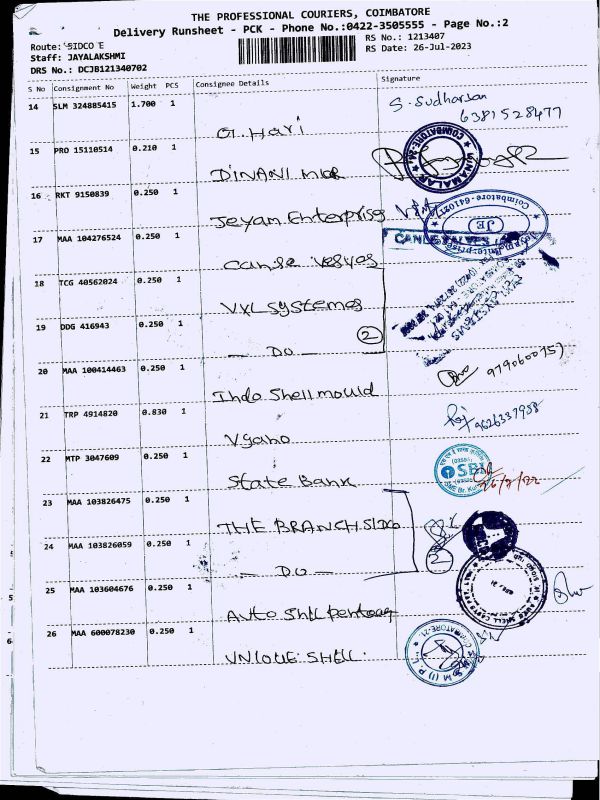 THE PROFESSIONAL COURIERS, COIMBATORE
Delivery Runsheet - PCK - Phone No.:0422-3505555 - Page No.:2
Route: SIDCO E
RS No.: 1213407
Staff: JAYALAKSHMI
RS Date: 26-Jul-2023
DRS No.: DCJB121340702
S No Consignment No Weight PCS Consignee Details Signature
14 SLM 324885415 1.700 1
G. Hari
S. Sudharsan
6381528477
15 PRO 15110514 0.210 1
DINAMI
COIMBATORE-21
DINAMALAR
16 RKT 9150839 0.250 1
Jeyam Enterprises
Coimbatore-641021
JE
Jeyam Enterprises
17 MAA 104276524 0.250 1
18 TCG 40562024 0.250 1
VXL systemes
19 DDG 416943 0.250 1
— DO —
2
20 MAA 100414463 0.250 1
Indo Shell mould
9790600757
21 TRP 4914820 0.830 1
9626337958
22 MTP 3047609 0.250 1
State Bank
SBI
23 MAA 103826475 0.250 1
THE BRANCH SIDCO
24 MAA 103826059 0.250 1
— DO —
2
25 MAA 103604676 0.250 1
26 MAA 600078230 0.250 1
COIMBATORE-21